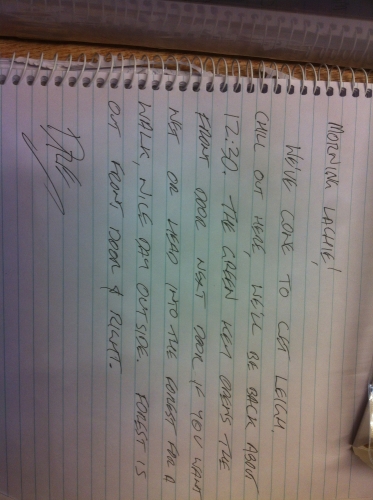 MORNING LACHIE!
WE'VE GONE TO GET LEIGH.
CHILL OUT HERE, WE'LL BE BACK ABOUT
12:30. THE GREEN KEY OPENS THE
FRONT DOOR NEXT DOOR IF YOU WANT
NET OR HEAD INTO THE FOREST FOR A
WALK, NICE DAY OUTSIDE. FOREST IS
OUT FRONT DOOR & RIGHT.